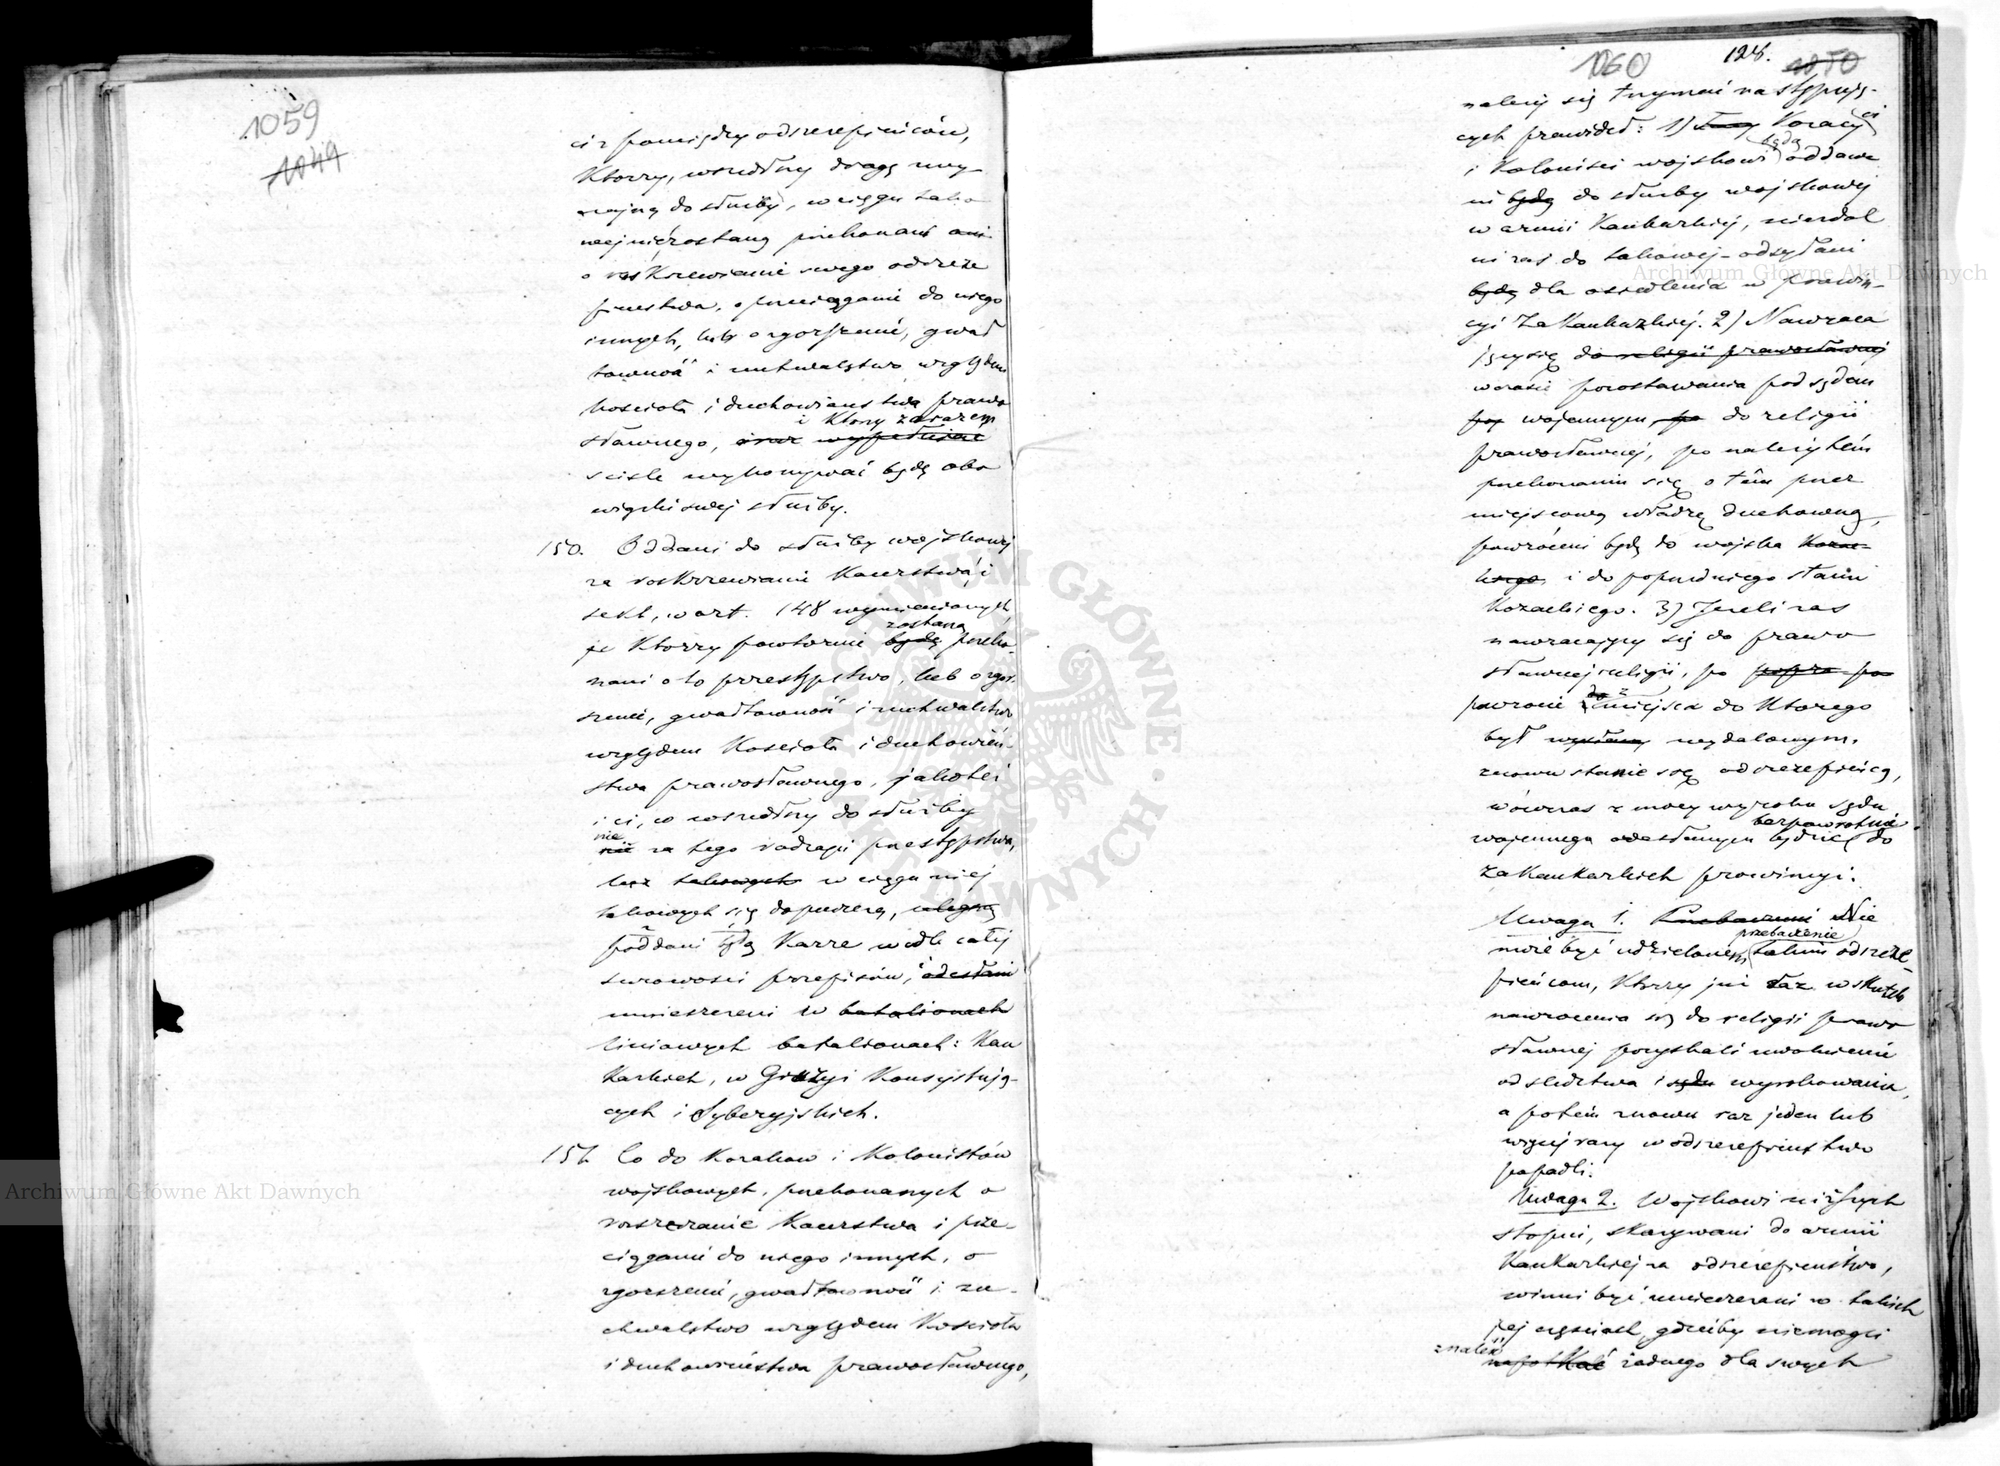 1059
1049
ci z pomiędzy odszczepieńców,
Którzy, wszedłszy drogą wy-
do służby, w ciągu tako
wej nie zostaną przekonani ani
o roskrzewianie swego odszcze
pieństwa, o pociąganie do niego
innych, lub o zgorszenie, gwał
towność i zuchwalstwo względem
kościoła i duchowieństwa prawo
i Którzy zarazem
sławnego, oraz wypełniać
ściśle wykonywać będą obo
wiązki swej służby.
150. Oddani do służby wojskowej
za roskrzewianie Kacerstwa i
sekt, w art. 148 wymienionych,
zostaną
Którzy powtórnie będą przeko-
nani o to przestępstwo, lub o zgor-
szenie, gwałtowność i zuchwalstwo
względem Kościoła i duchowień-
stwa prawosławnego, jakoteż
i ci, co wszedłszy do służby
nie
nie za tego rodzaju przestępstwa,
lecz takowych w ciągu niej
takowych się dopuszczą, ulegną
poddani będą Karze wedle całej
surowości przepisów, i odesłani
umieszczeni w batalionach
liniowych batalionach: Kau
Kazkich, w Gruzyi Konsystują-
cych i Syberyjskich.
151. Co do Kozaków i Kolonistów
wojskowych, przekonanych o
rozszerzanie Kacerstwa i prze-
ciąganie do niego innych, o
zgorszenie, gwałtowność i zu-
chwalstwo względem Kościoła
i duchowieństwa prawosławnego,
1060 128. 1050
należy się trzymać następują-
cych prawideł: 1) Kozacy ci
będą
i Koloniści wojskowi oddawa
ni będą do służby wojskowej
w armii Kaukazkiej, niezdol
ni zaś do takowej – odsyłani
będą dla osiedlenia w prowin-
cyi Zakaukazkiej. 2) Nawraca
jący się do religii prawosławnej
w czasie pozostawania pod sądem
wojennym po do religii
prawosławnej, po należytém
przekonaniu się o tém przez
miejscową władzę duchowną,
powróceni będą do wojska Kozac-
kiego i do poprzedniego stanu
Kozackiego. 3) Jeżeli zaś
nawracający się do prawo
sławnej religii, po
do
powrocie z miejsca do Którego
był wysłany wydalonym,
znowu stanie się odszczepieńcą,
wówczas z mocy wyroku sądu
bezpowrotnie
wojennego odesłanym będzie do
Zakaukazkich prowincyi.
Uwaga 1. Przebaczenie Nie
przebaczenie
może być udzielonem takim odszcze-
pieńcom, Którzy już raz w skutek
nawrócenia się do religii prawo
sławnej pozyskali uwolnienie
od śledztwa i sądu wyrokowania,
a potém znowu raz jeden lub
więcej razy w odszczepieństwo
popadli.
Uwaga 2. Wojskowi niższych
stopni, skazywani do armii
Kaukazkiej za odszczepieństwo,
winni być umieszczani w takich
jej częściach, gdzieby niemogli
znaleźć
napotkać żadnego dla swych
Archiwum Główne Akt Dawnych
Archiwum Główne Akt Dawnych
ARCHIWUM GŁÓWNE AKT DAWNYCH